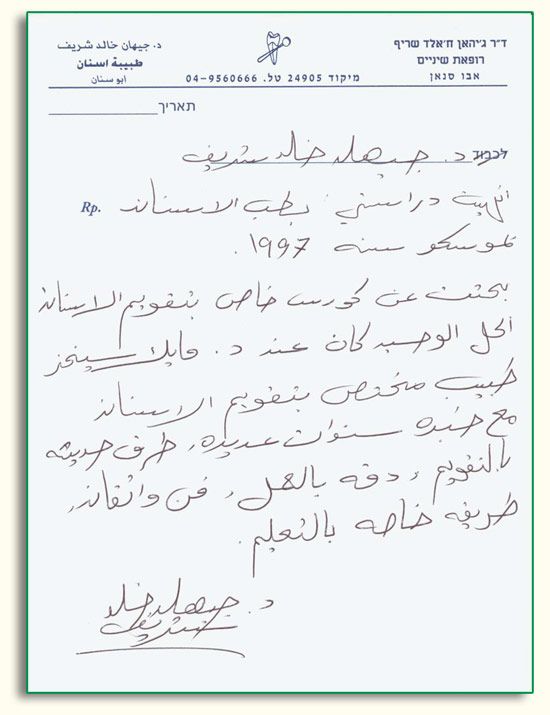 ד״ר ג׳יהאן ח׳אלד שריף
רופאת שיניים
אבו סנאן
د. جيهان خالد شريف
طبيبة اسنان
ابو سنان
מיקוד 24905 טל. 04-9560666
תאריך
לכבוד
د. جيهان خالد شريف
Rp.
انهيت دراستي بطب الاسنان
بموسكو سنه ١٩٩٧.
بحثت عن كورس خاص بتقويم الاسنان
الحل الوحيد كان عند د. مايك
طبيب مختص بتقويم الاسنان
مع خبره سنوات عديده، طرق حديثه
بالتقويم، دقه بالعمل، فن واتقان،
طريقه خاصه بالتعليم.
د. جيهان خالد
شريف